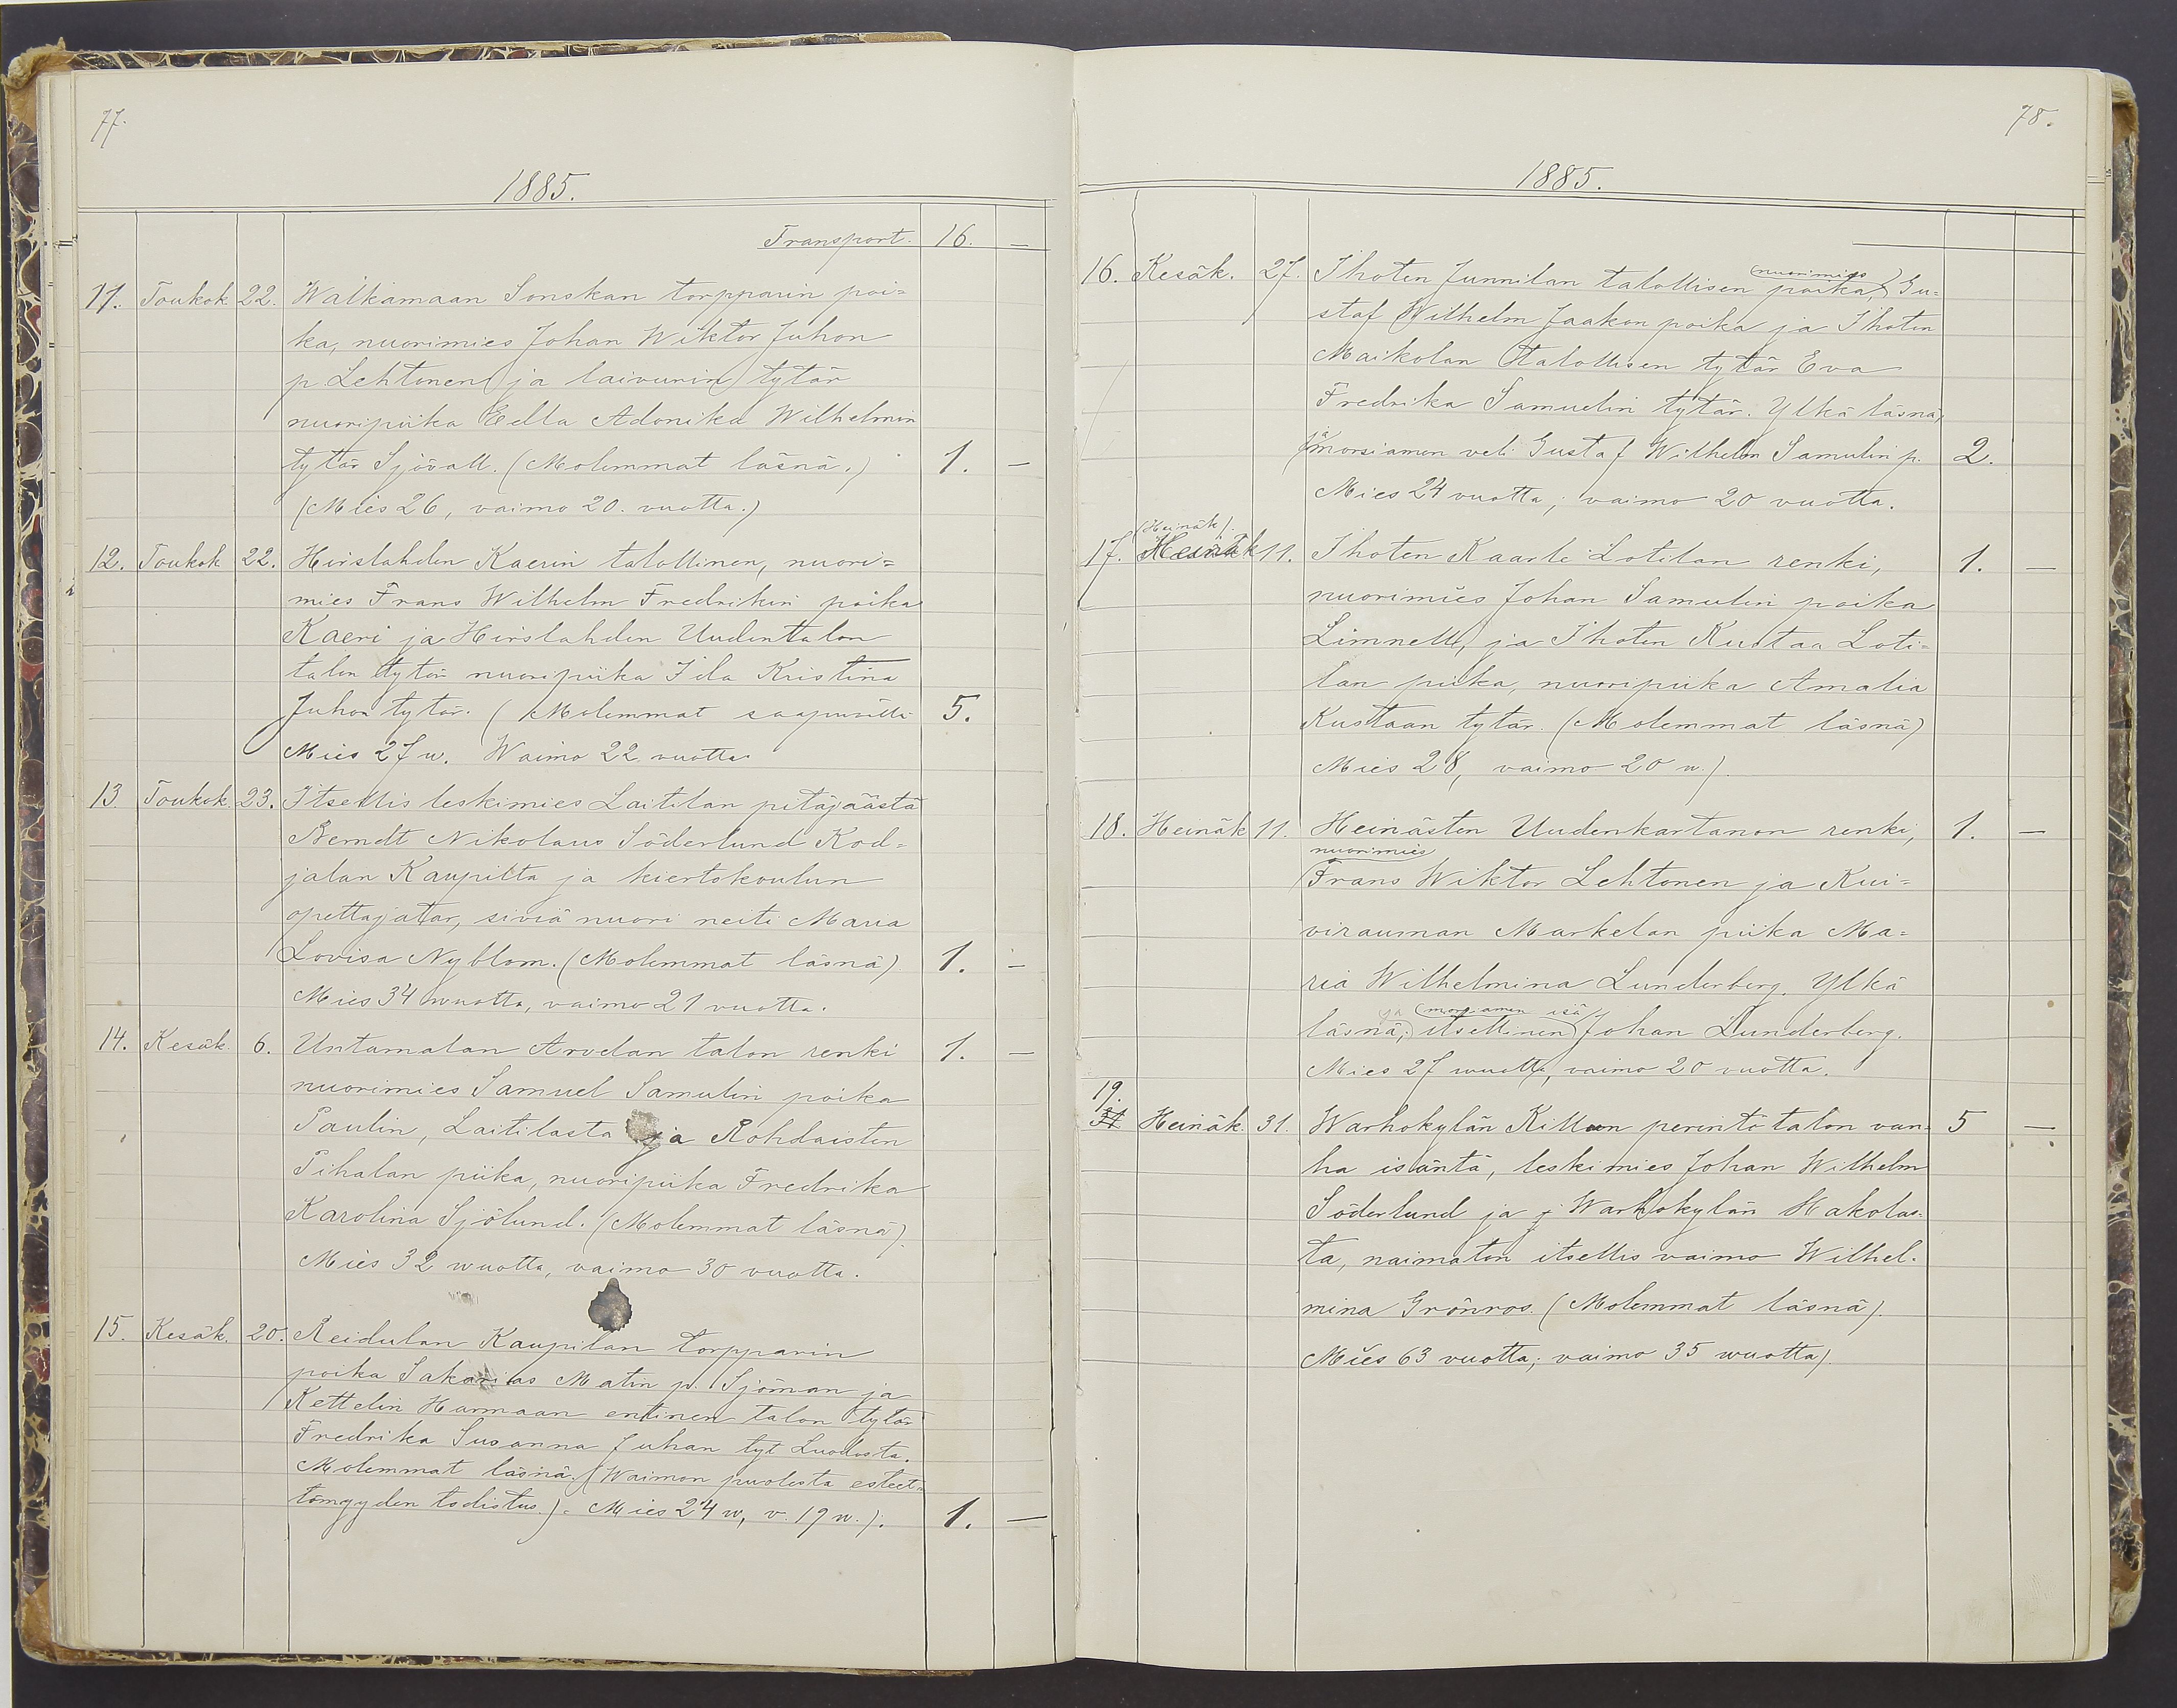 77.
1885.
Transport. 16. —
11. Toukok. 22. Walkamaan Sonskan torpparin poi=
ka, nuorimies Johan Wiktor Juhon
p. Lehtonen (ja laivurin) tytär
nuoripiika Eella Adonika Wilhelmin
tytär Sjövall. (Molemmat läsnä.) 1. —
(Mies 26, vaimo 20. vuotta.)
12. Toukok 22. Hirslahden Kaerin talollinen, nuori=
mies Frans Wilhelm Fredrikin poika
Kaeri ja Hirslahden Uudentalon
talon tytär nuoripiika Ida Kristina
Juhon tytär. (Molemmat saapuvilla 5.
Mies 27 w. Waimo 22 vuotta
13. Toukok. 23. Itsellis leskimies Laitilan pitäjäästä
Berndt Nikolaus Söderlund Kod=
jalan Kaupilta ja kiertokoulun
opettajatar, siviä nuori neiti Maria
Lovisa Nyblom. (Molemmat läsnä) 1. —
Mies 34 wuotta, vaimo 21 vuotta.
14. Kesäk. 6. Untamalan Arvelan talon renki 1. —
nuorimies Samuel Samulin poika
Paulin, Laitilasta ja Rohdaisten
Pihalan piika, nuoripiika Fredrika
Karolina Sjölund. (Molemmat läsnä).
Mies 32 wuotta, vaimo 30 vuotta.
15. Kesäk. 20. Reidulan Kaupilan torpparin
poika Sakarias Matin p. Sjöman ja
Kettelin Harmaan entinen talon tytär
Fredrika Susanna Juhan tyt Luodosta.
Molemmat läsnä. (Waimon puolesta esteet=
tömyyden todistus.) Mies 24 w, v. 19 w.). 1. —
78.
1885.
16. Kesäk. 27. Ihoten Junnilan talollisen (nuorimies) poika, Gu=
staf Wilhelm Jaakon poika ja Ihoten
Maikolan talollisen tytär Eva
Fredrika Samuelin tytär. Ylkä läsnä,
ja morsiamen veli Gustaf Wilhelm Samulin p. 2.
Mies 24 vuotta, vaimo 20 vuotta.
(Heinäk).
17. Heinäk 11. Ihoten Kaarle Lotilan renki, 1. —
nuorimies Johan Samulin poika
Limnell, ja Ihoten Kustaa Loti=
lan piika, nuoripiika Amalia
Kustaan tytär. (Molemmat läsnä)
Mies 28, vaimo 20 w.).
18. Heinäk 11. Heinästen Uudenkartanon renki, 1. —
nuorimies
Frans Wiktor Lehtonen ja Kui=
virauman Markelan piika Ma=
ria Wilhelmina Lunderberg. Ylkä
ja (morsiamen isä
läsnä; itsellinen) Johan Lunderberg.
Mies 27 wuotta, vaimo 20 vuotta.
19.
31 Heinäk. 31. Warhokylän Killan perintö talon van= 5 —
ha isäntä, leskimies Johan Wilhelm
Söderlund ja j Warhokylän Hakolas=
ta, naimaton itsellis vaimo Wilhel=
mina Grönros. (Molemmat läsnä).
Mies 63 vuotta; vaimo 35 wuotta).